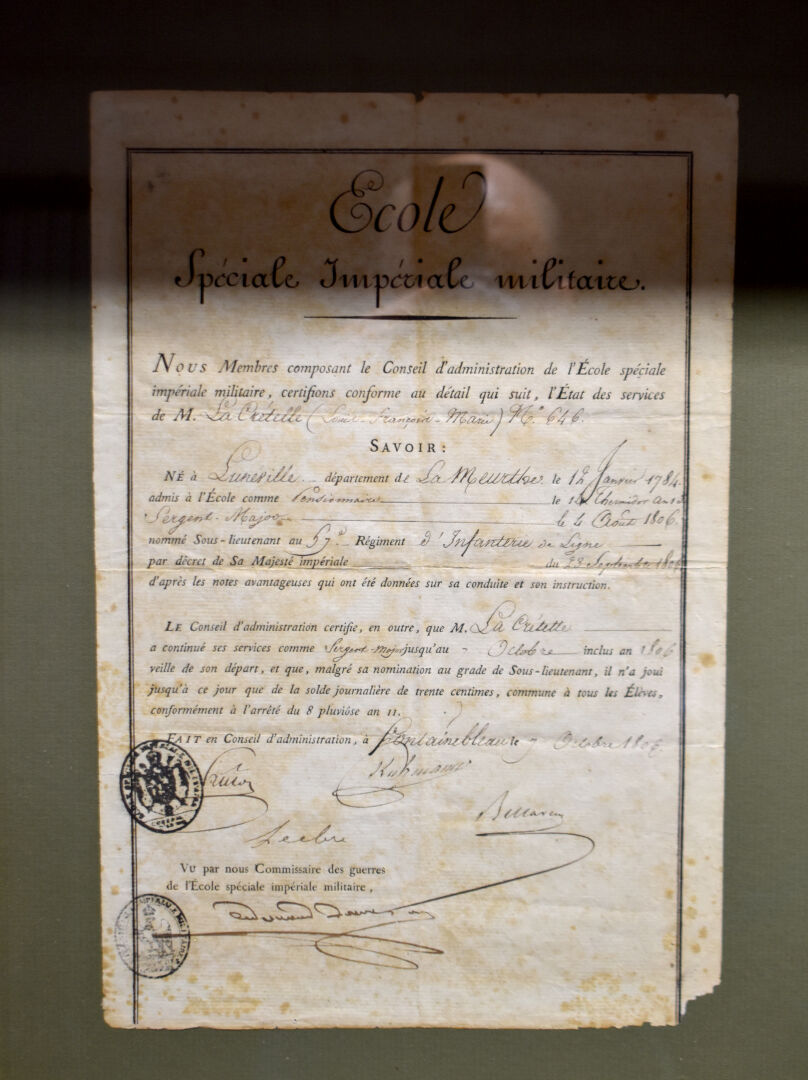 École
Spéciale Impériale militaire.
Nous Membres composant le Conseil d'administration de l'École spéciale
impériale militaire, certifions conforme au détail qui suit, l'État des services
de M. La Crételle (Louis-François-Marie) N.º 646.
Savoir :
Né à Lunéville département de La Meurthe le 12 Janvier 1784
admis à l'École comme Pensionnaire le Thermidor an
Sergent-Major le 4 Août 1806.
nommé Sous-lieutenant au 57.e Régiment d'Infanterie de Ligne
par décret de Sa Majesté impériale du 23 Septembre 1806
d'après les notes avantageuses qui ont été données sur sa conduite et son instruction.
Le Conseil d'administration certifie, en outre, que M. La Crételle
a continué ses services comme Sergent-Major jusqu'au 7 Octobre inclus an 1806
veille de son départ, et que, malgré sa nomination au grade de Sous-lieutenant, il n'a joui
jusqu'à ce jour que de la solde journalière de trente centimes, commune à tous les Élèves,
conformément à l'arrêté du 8 pluviôse an 11.
Fait en Conseil d'administration, à Fontainebleau le 7 Octobre 1806.
Kuhmann
Bellavene
Vu par nous Commissaire des guerres
de l'École spéciale impériale militaire,